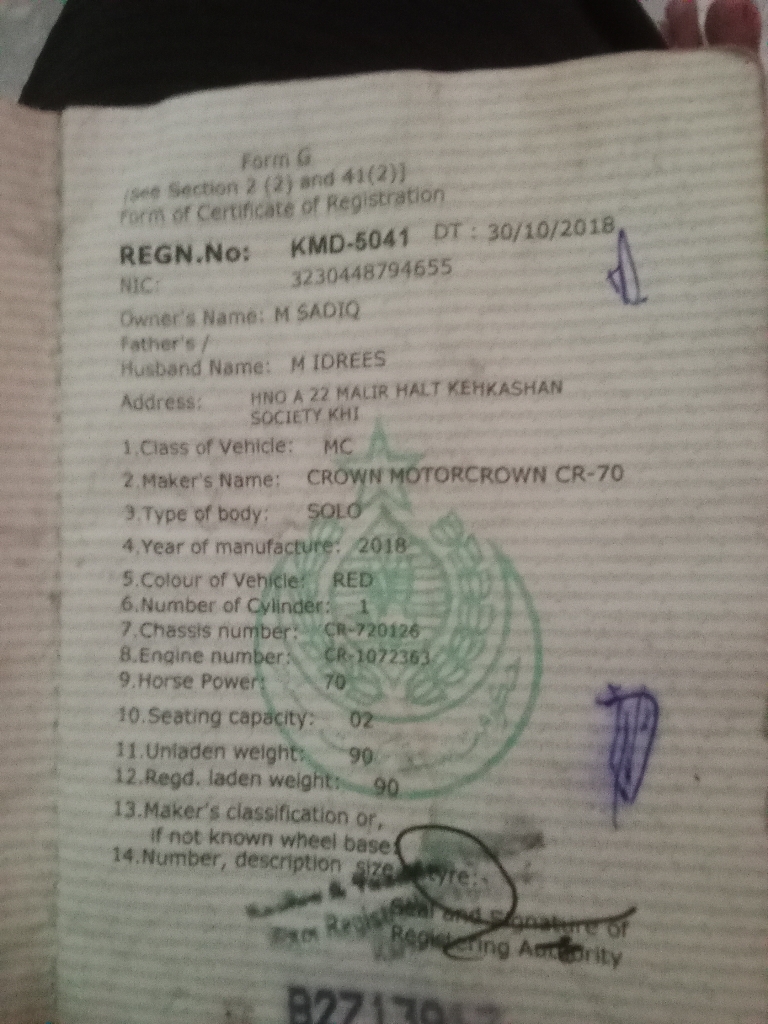 Form G
[See Section 2 (2) and 41(2)]
Form of Certificate of Registration
REGN.No: KMD-5041 DT : 30/10/2018
NIC: 3230448794655
Owner's Name: M SADIQ
Father's /
Husband Name: M IDREES
Address: HNO A 22 MALIR HALT KEHKASHAN
SOCIETY KHI
1.Class of Vehicle: MC
2.Maker's Name: CROWN MOTORCROWN CR-70
3.Type of body: SOLO
4.Year of manufacture: 2018
5.Colour of Vehicle: RED
6.Number of Cylinder: 1
7.Chassis number: CR-720126
8.Engine number: CR-1072363
9.Horse Power: 70
10.Seating capacity: 02
11.Unladen weight: 90
12.Regd. laden weight: 90
13.Maker's classification or,
if not known wheel base:
14.Number, description size tyre:-
Seal and Signature of
Registering Authority